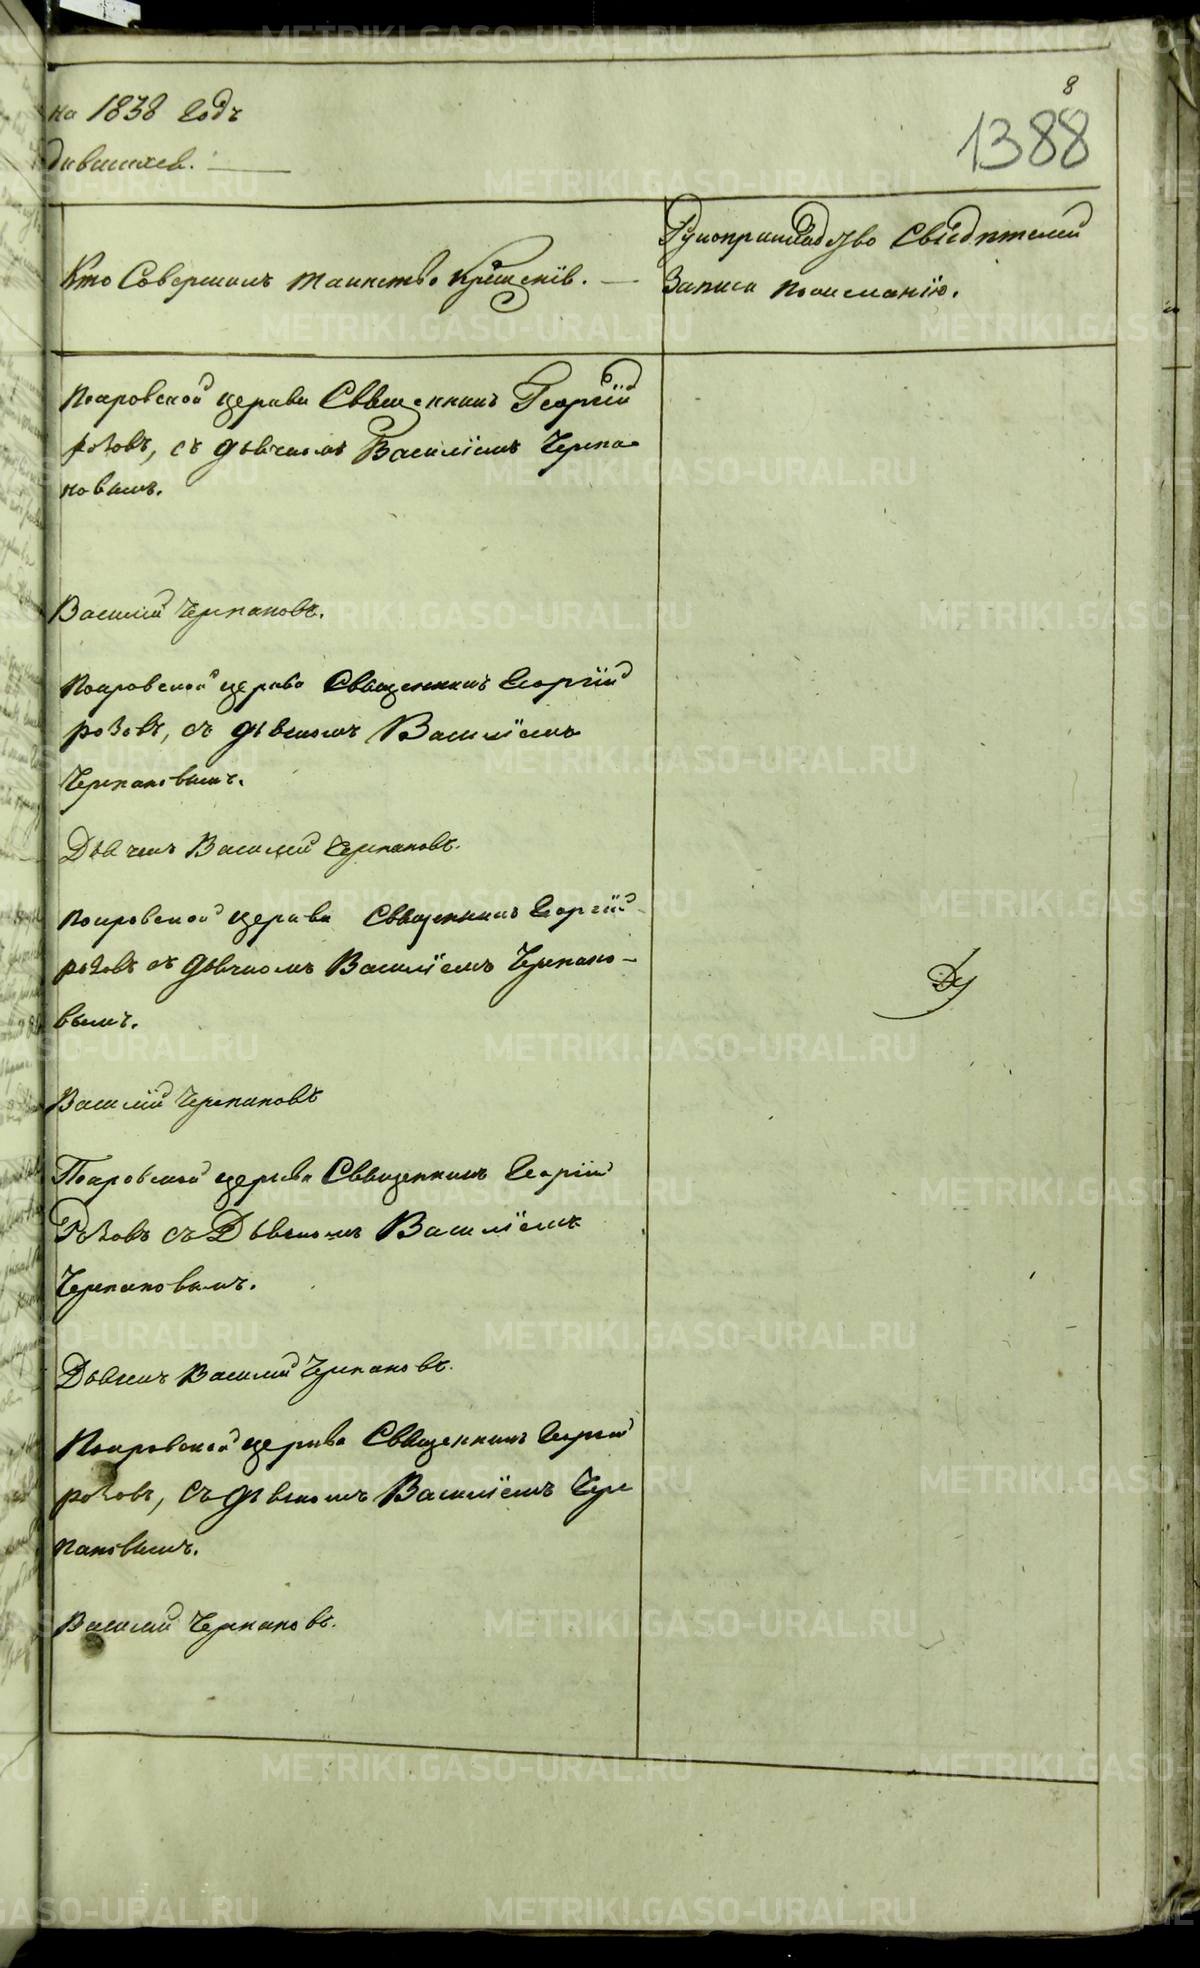 8
1388
на 1838 Годъ
дившихся.
Кто Совершалъ таинство крещенїя.
Рукоприкладство Свидѣтелей
Записи по желанїю.
Покровской церкви Священникъ Георгїй
розовъ, съ дьячкомъ Василїемъ Черпа-
новымъ.
Василїй Черпановъ.
Покровской церкви Священникъ Георгїй
розовъ, съ дьячкомъ Василїемъ
Черпановымъ.
Дьячекъ Василїй Черпановъ.
Покровской церкви Священникъ Георгїй
розовъ съ дьячкомъ Василїемъ Черпано-
вымъ.
Василїй Черпановъ
Покровской церкви Священникъ Георгїй
Розовъ съ Дьячкомъ Василїемъ
Черпановымъ.
Дьячекъ Василїй Черпановъ.
Покровской церкви Священникъ Георгїй
розовъ, съ дьячкомъ Василїемъ Чер
пановымъ.
Василїй Черпановъ.
METRIKI.GASO-URAL.RU